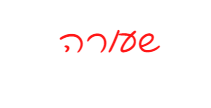 שעורה